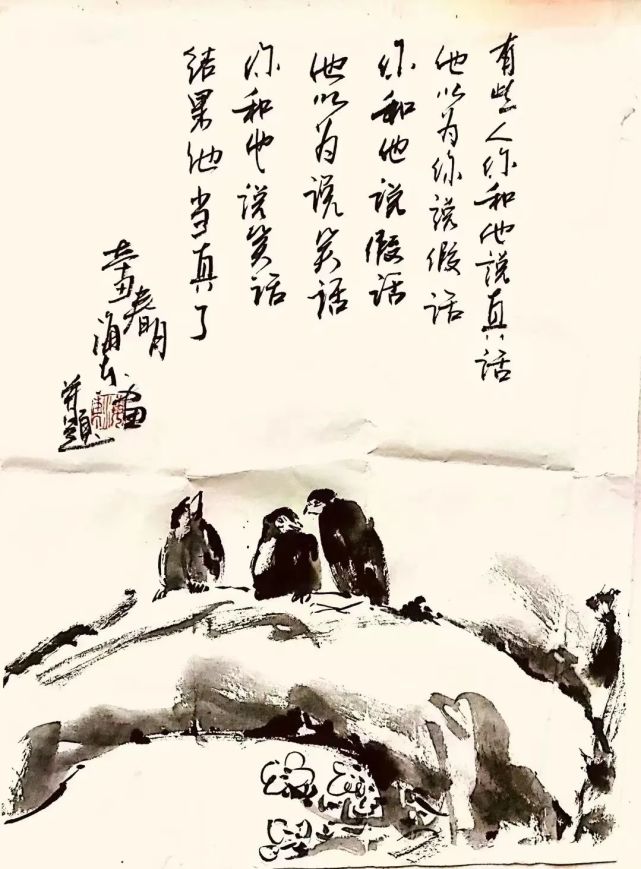 有些人你和他说真话
他以为你说假话
你和他说假话
他以为说笑话
你和他说笑话
结果他当真了
春明
海东画
并题